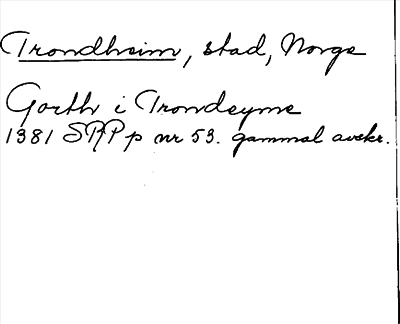 Trondheim, stad, Norge
Gorth i Trondeyme
1381 SRP p nr 53. gammal avskr.